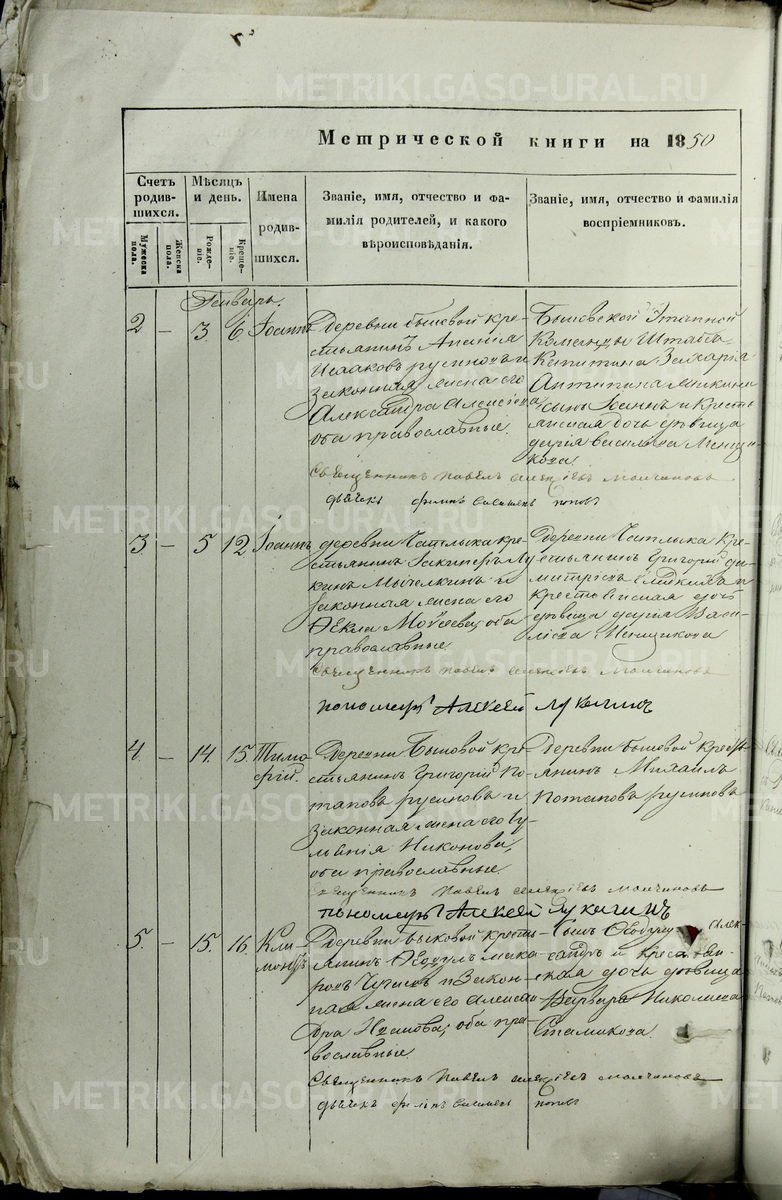 METRIKI.GASO-URAL.RU
Метрической книги на 1850
Счетъ родившихся.
Мужеска пола.
Женска пола.
Мѣсяцъ и день.
Рожденіе.
Крещеніе.
Имена родившихся.
Званіе, имя, отчество и фамилія родителей, и какого вѣроисповѣданія.
Званіе, имя, отчество и фамилія воспріемниковъ.
Генварь.
2 — 3 6 Іоаннъ
Деревни бысовой кре-
стьянинъ
Исааковъ русиновъ и
законная жена его
Александра Алексіева
оба православные.
Этапной
Команды Штабсъ
Капитана Захарія
Антипина
сынъ Іоаннъ и кресть
янская дочь дѣвица
дарія васильева Менщи-
кова.
Священникъ Павелъ Алексіевъ Молчановъ
дьячекъ филипъ поповъ
3. — 5 12 Іоаннъ
деревни Чатлыка кре-
стьянинъ
и
законная жена его
Фекла Моѵсеева, оба
православные
Деревни Чатлыка Кре-
стьянинъ Григорій ди-
митріевъ и
крестьянская дочь
дѣвица дарія Васи-
ліева Менщикова
Священникъ Павелъ Алексіевъ Молчановъ
пономарь Алексей Лукагинъ
4. — 14. 15. Тимо
ѳей.
Деревни Бысовой кре-
стьянинъ Григорій По-
таповъ русиновъ и
законная жена его Гу-
Никонова,
оба православные.
Деревни бысовой Кресть
янинъ Михаилъ
Потаповъ русиновъ
Священникъ Павелъ Алексіевъ Молчановъ
пономарь Алексей Лукагинъ
5. — 15. 16. Кли
ментъ
Деревни Бысовой кресть
янинъ мака-
ровъ и закон-
ная жена его Алексан
дра оба пра-
вославные.
Алек-
сандръ и крестьян-
ская дочь дѣвица
Варвара Николаева
Священникъ Павелъ Алексіевъ Молчановъ
дьячекъ филипъ поповъ